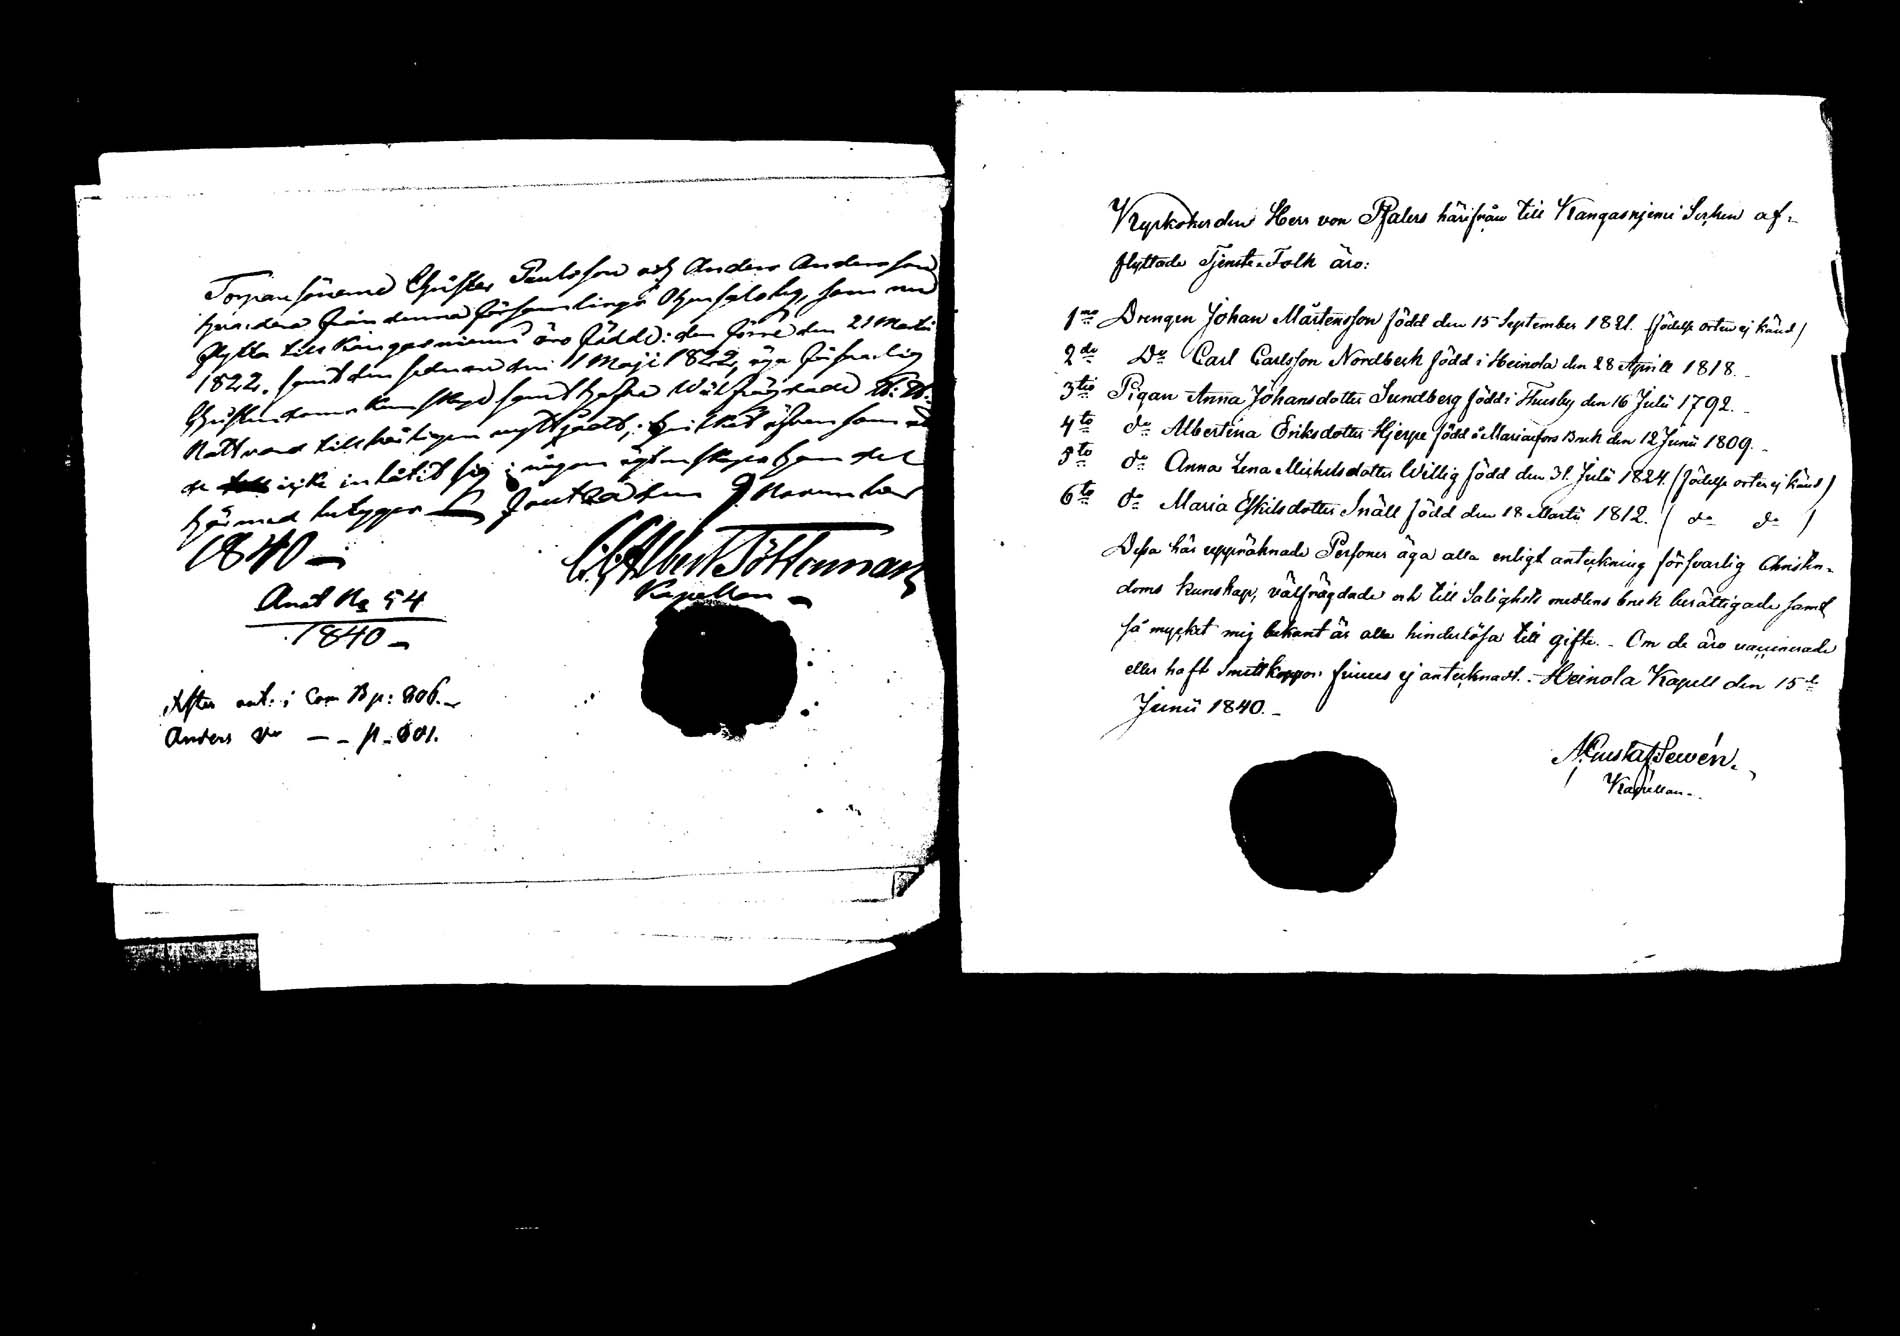 Torparesönerne Christer Paulsson och Anders Andersson
hvardera från denna församlings som nu
flytta till Kangasniemi äro födde: den förre den 21 Martii
1822. samt den sednare den 11 Maji 1822, äga försvarlig
Christendoms kunskap samt hafva Wälfrägdade H: H.
Nattvard tillbörligen nyttjadt; hvilket äfven som at
de icke inlåtit sig i någon ägtenskaps handel
härmed betygger Joutza den 9 November
1840
Albert Töttenman
Kapellan
Anat No 54
1840
ant: i Com B p: 806.
Anders Do — p. 801.
Kyrkoherden Herr von Pfalers härifrån till Kangasnjemi Socken af-
flyttade Tjenste-Folk äro:
1mo Drengen Johan Mårtensson född den 15 September 1821. (födelse orten ej känd)
2do Do Carl Carlsson Nordbeck född i Heinola den 28 Aprill 1818.
3tio Pigan Anna Johansdotter Sundberg född i Thusby den 16 Julii 1792.
4to do Albertina Eriksdotter Hjerpe född å Mariæfors Bruk den 12 Junii 1809.
5to do Anna Lena Michelsdotter Willig född den 31. Julii 1824. (födelse orten ej känd)
6to do Maria Eskilsdotter Snäll född den 18 Martii 1812. (do do)
Dessa här uppräknade Personer äga alla enligt anteckning försvarlig Christen-
doms kunskap, välfrägdade och till Salighets medlens bruk berättigade samt
så mycket mig bekant är alla hinderlösa till gifte. - Om de äro vaccinerade
eller haft Smittkoppor finnes ej antecknadt. - Heinola Kapell den 15de
Junii 1840.
N. Gustaf Lewén.
Kapellan.